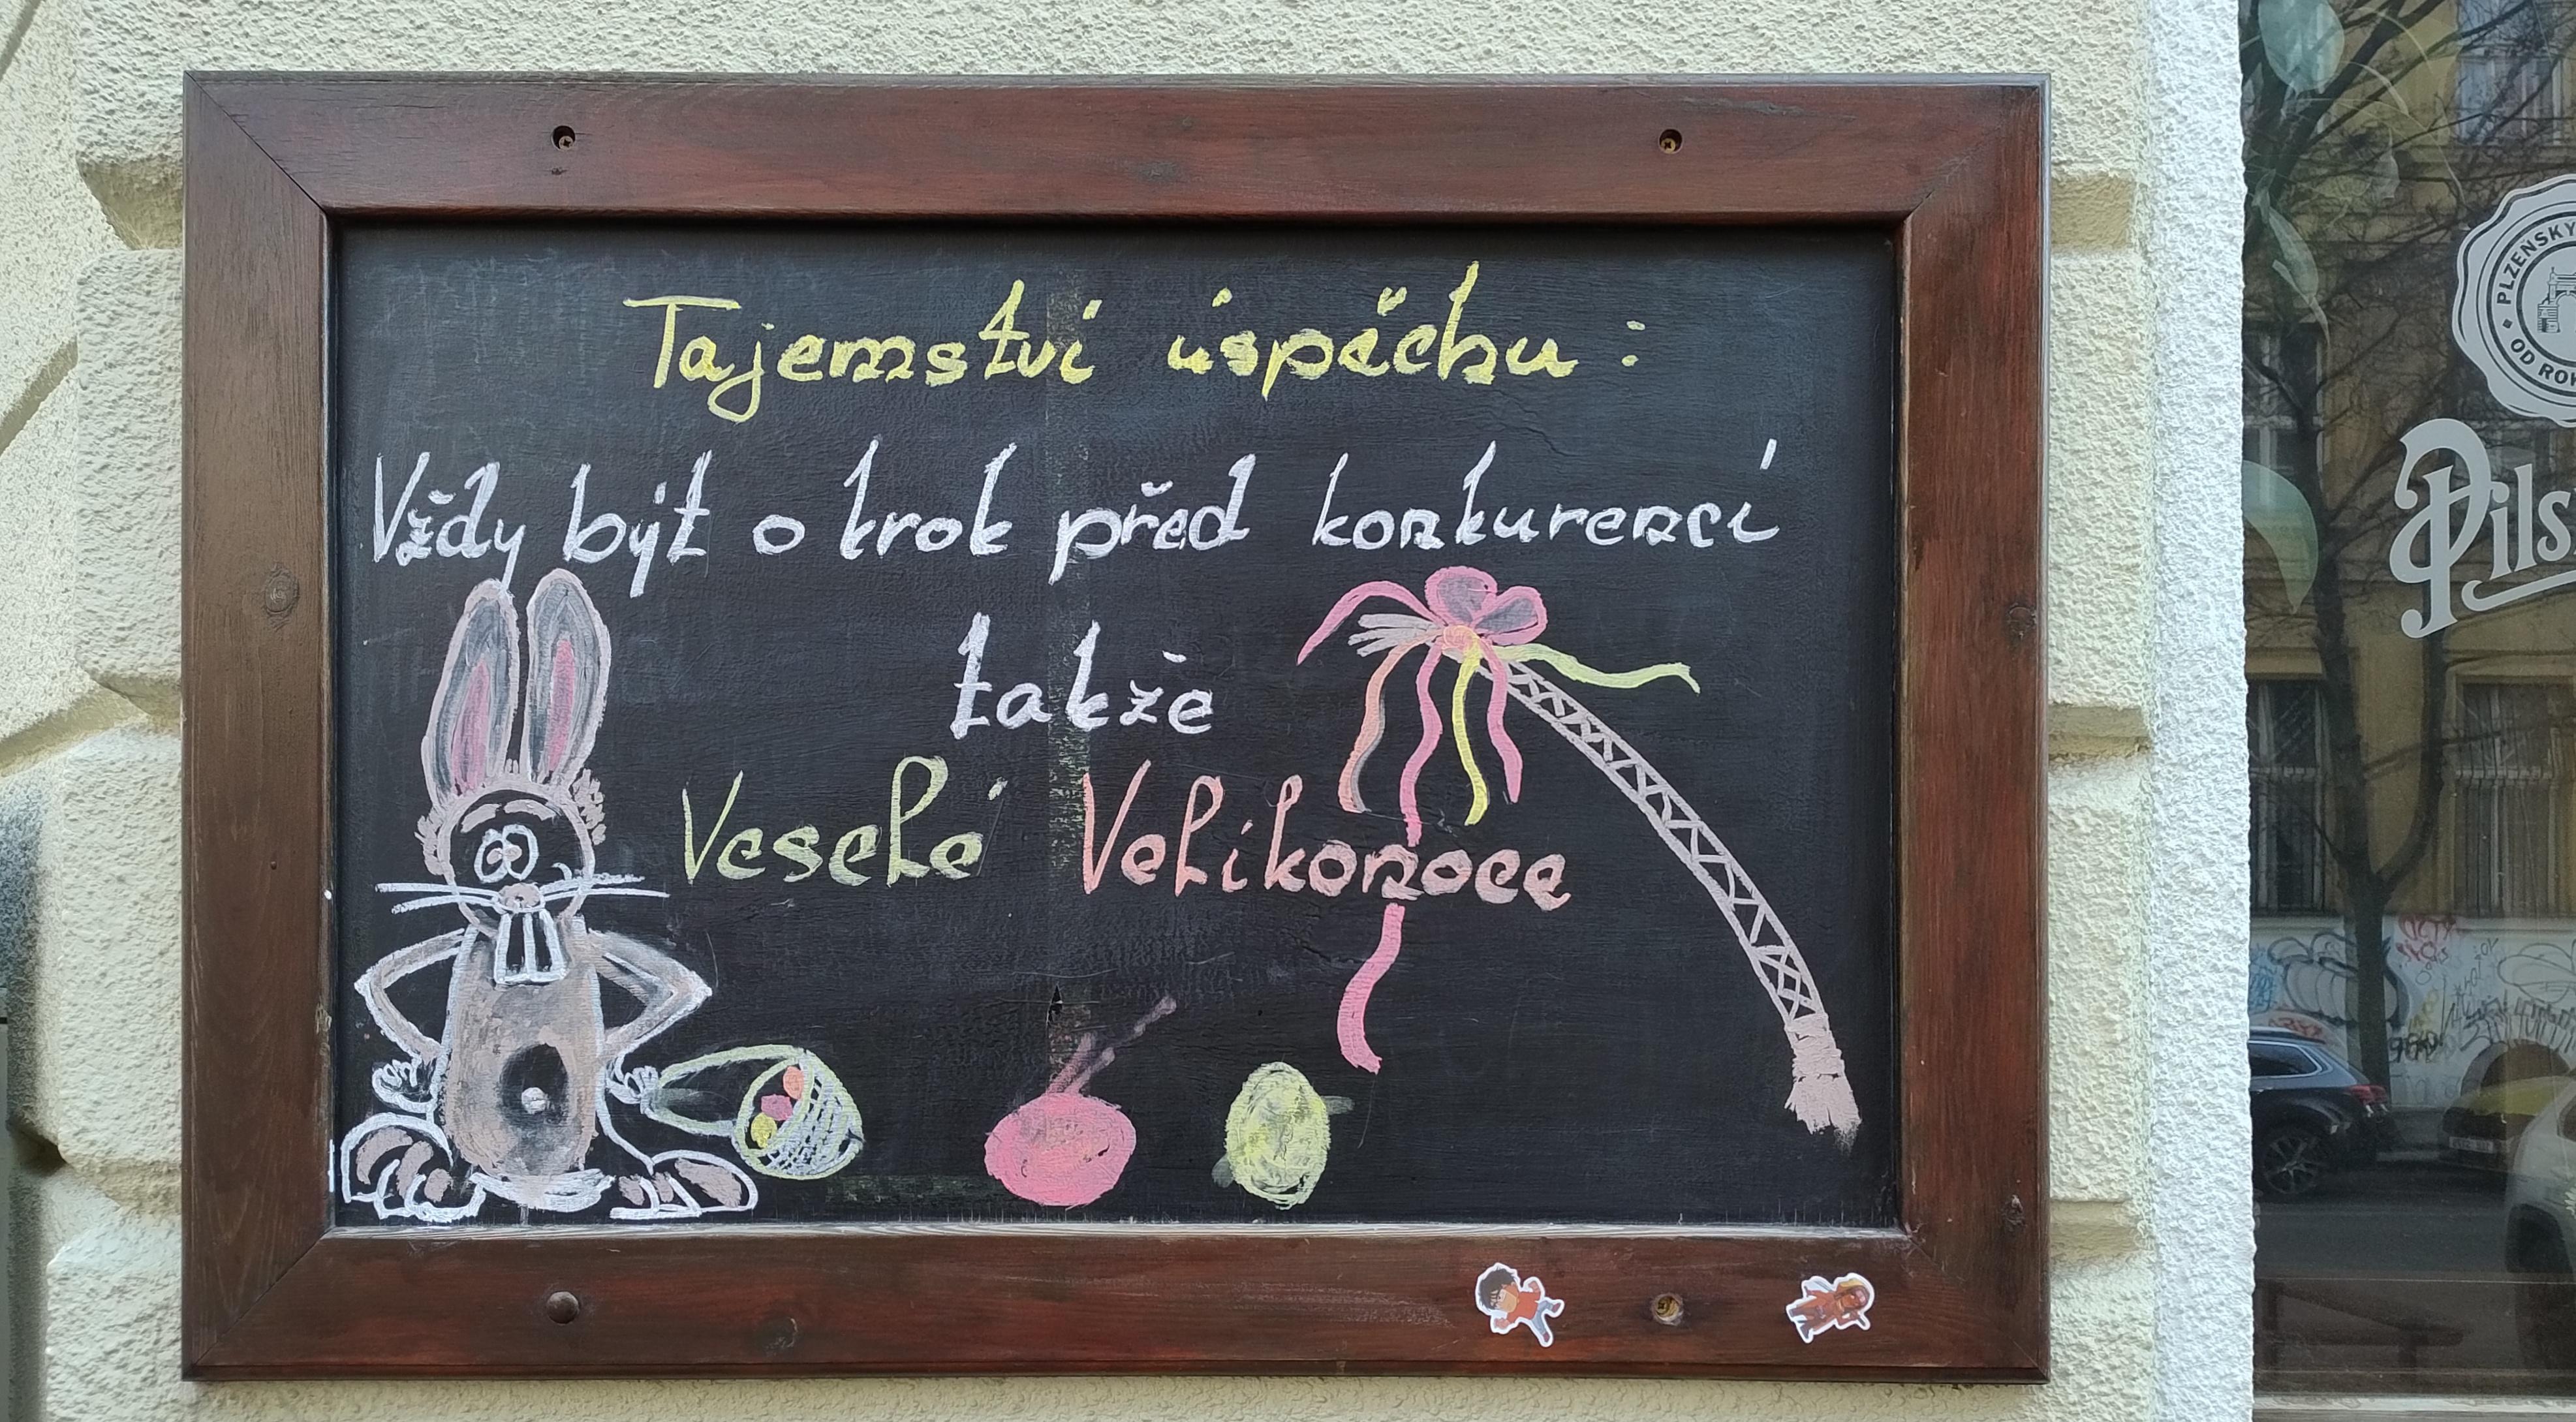 Tajemství úspěchu:
Vždy být o krok před konkurencí
takže
Veselé Velikonoce
PLZEŇSKÝ
OD ROK
Pils